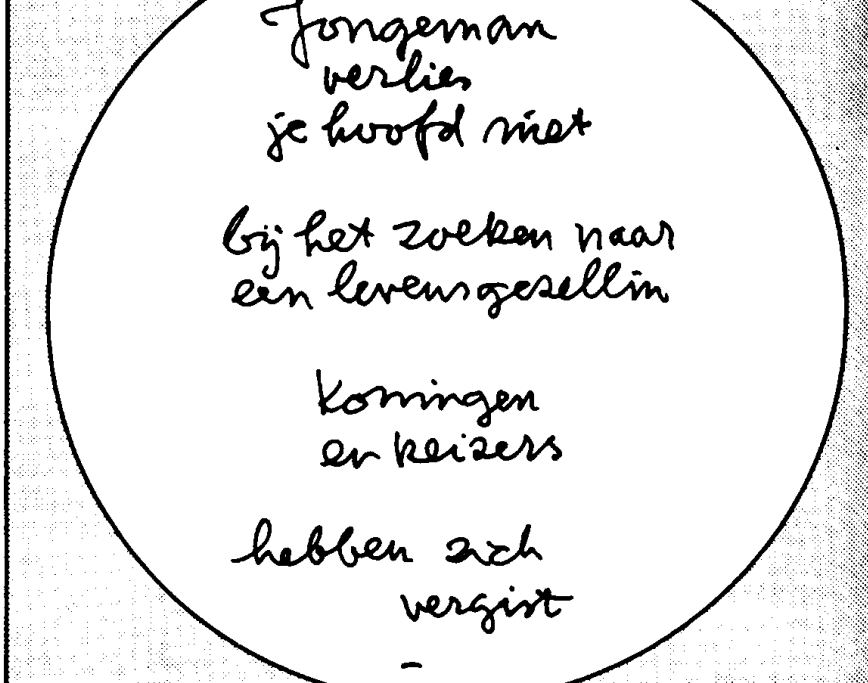 Jongeman
verlies
je hoofd niet
bij het zoeken naar
een levensgezellin
Koningen
en keizers
hebben zich
vergist
-